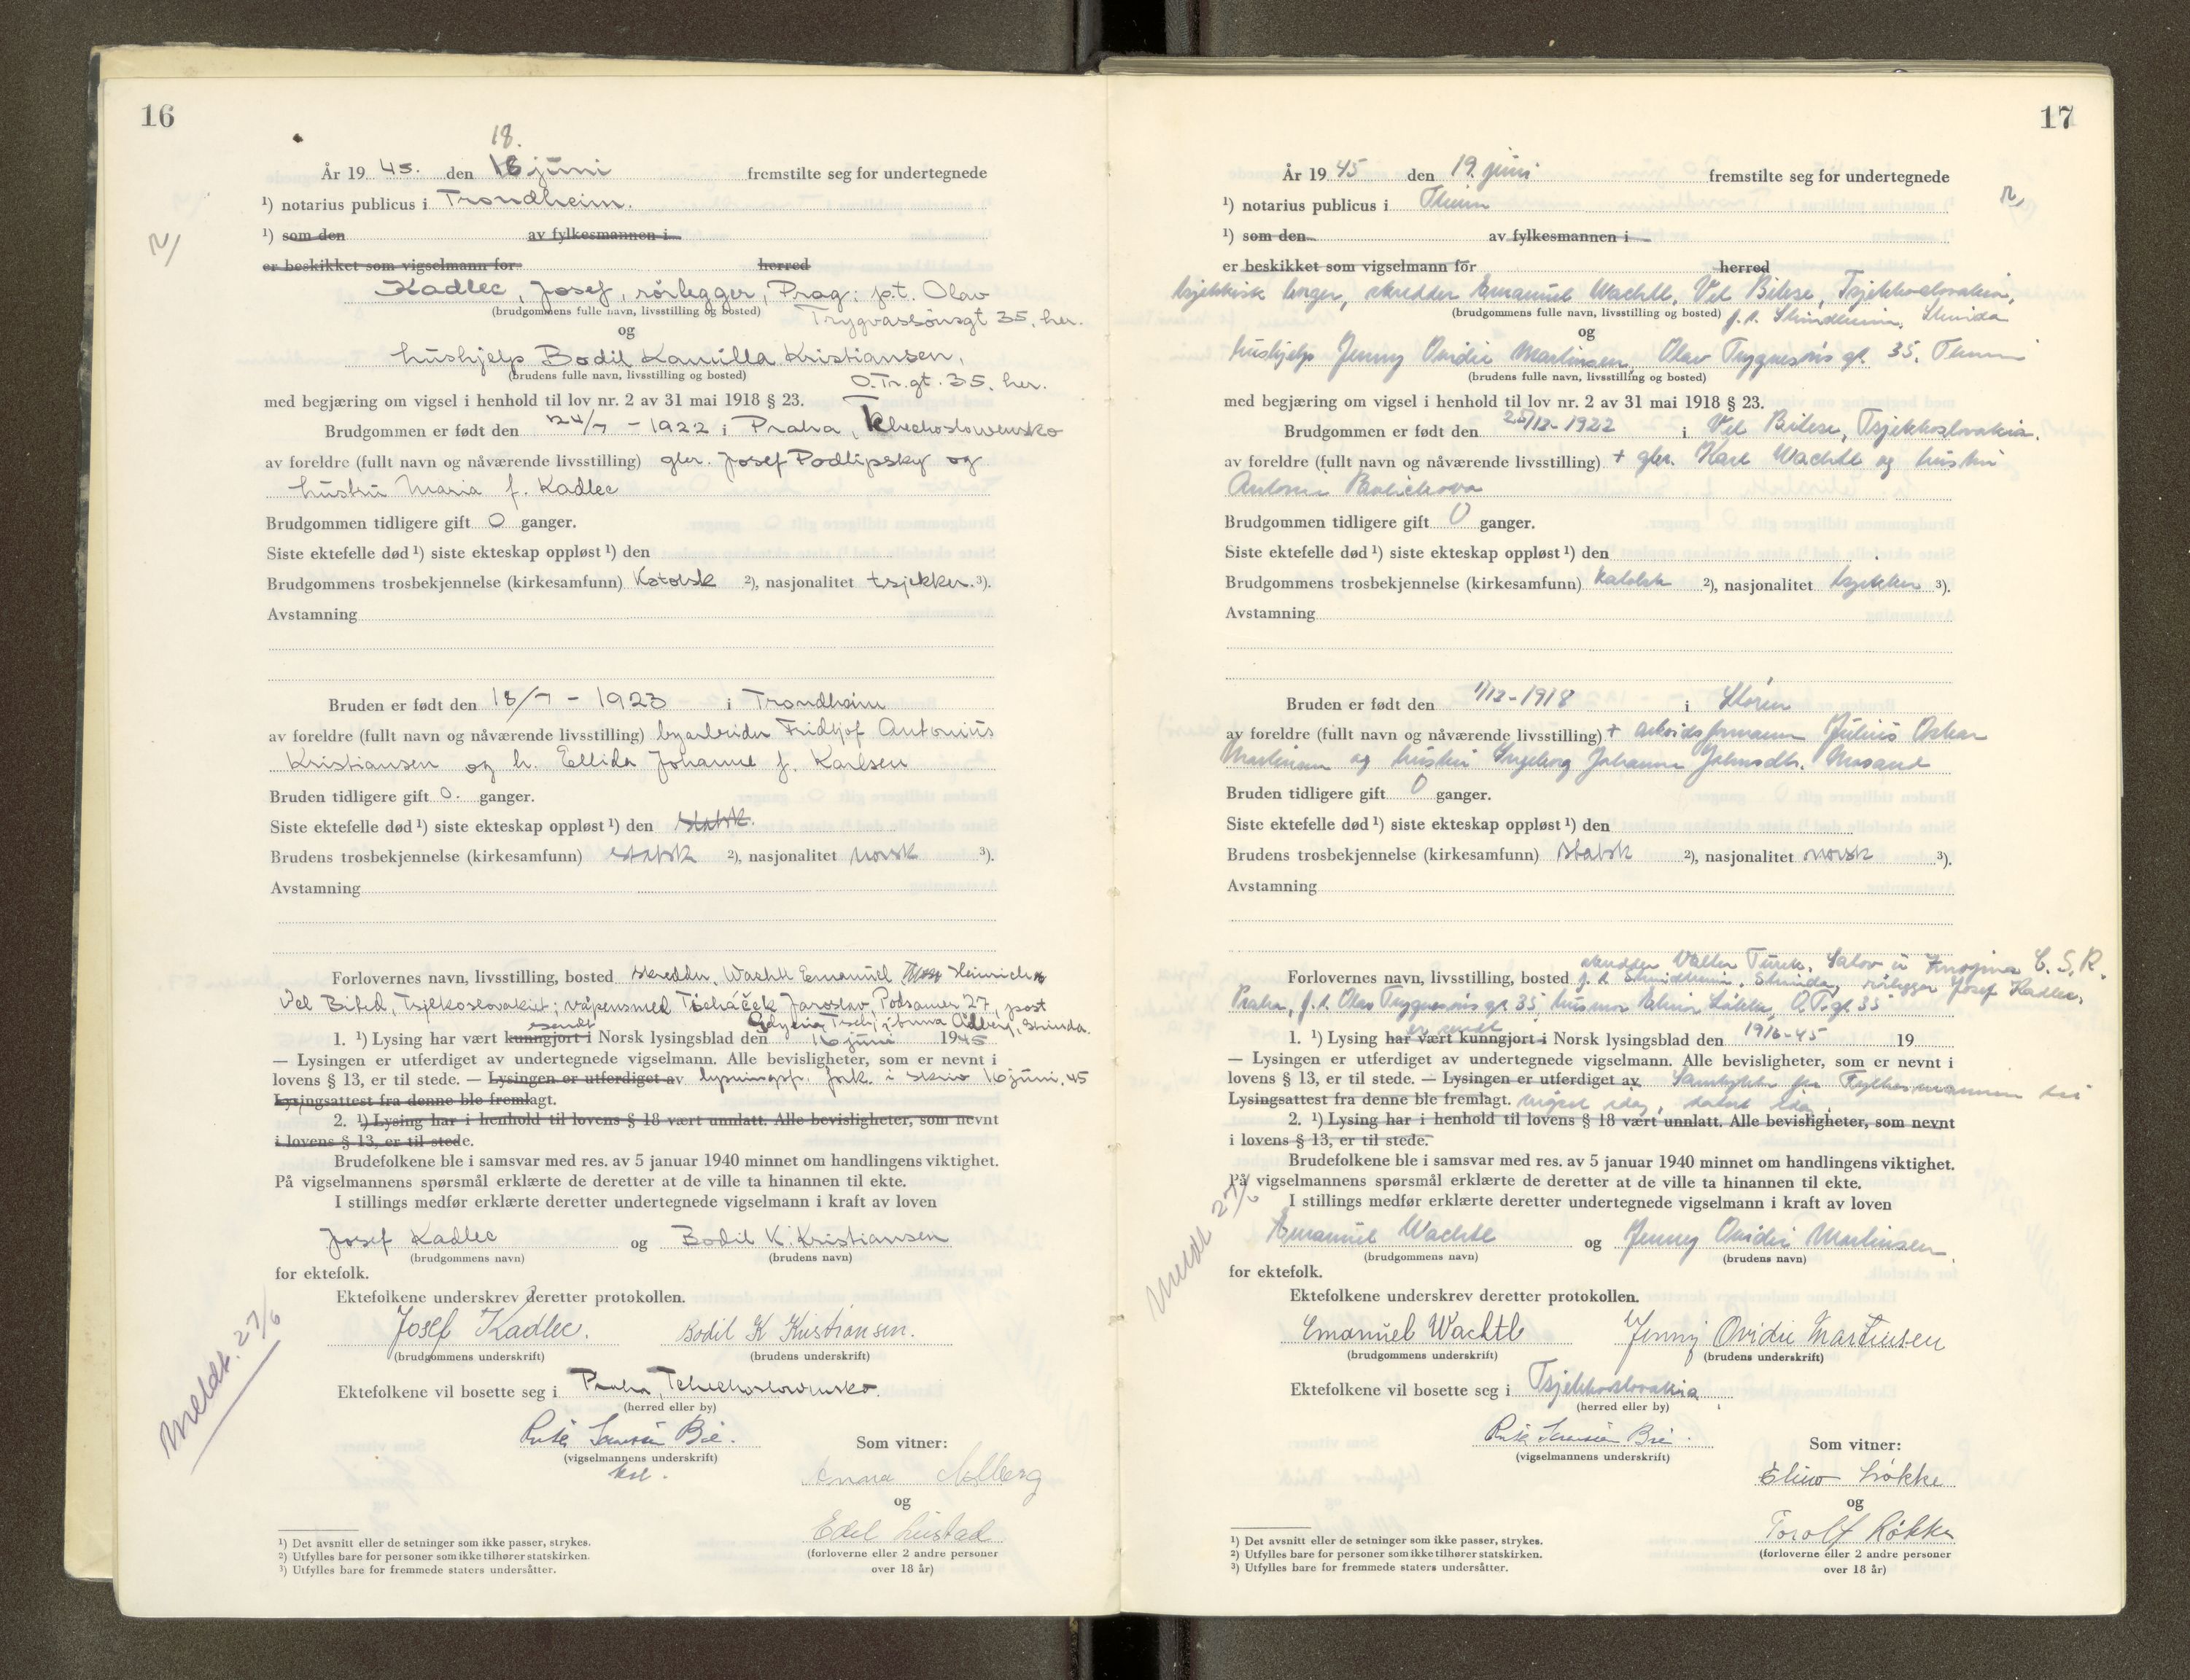 16
18.
År 19 45. den 18 juni fremstilte seg for undertegnede
¹) notarius publicus i Trondheim.
¹) som den av fylkesmannen i
er beskikket som vigselmann for herred
Kadlec, Josef, rörlegger, Prag; p.t. Olav
(brudgommens fulle navn, livsstilling og bosted) Trygvassönsgt 35, her.
og
hushjelp Bodil Kamilla Kristiansen,
(brudens fulle navn, livsstilling og bosted) O.Tr.gt. 35, her.
med begjæring om vigsel i henhold til lov nr. 2 av 31 mai 1918 § 23.
Brudgommen er født den 24/7 - 1922 i Praha,
av foreldre (fullt navn og nåværende livsstilling) gbr. Josef Podlipsky og
hustru Maria f. Kadlec
Brudgommen tidligere gift 0 ganger.
Siste ektefelle død ¹) siste ekteskap oppløst ¹) den
Brudgommens trosbekjennelse (kirkesamfunn) Katolsk ²), nasjonalitet tsjekker. ³).
Avstamning
Bruden er født den 18/7 - 1923 i Trondheim
av foreldre (fullt navn og nåværende livsstilling) byarbeider Fridtjof Antonius
Kristiansen og h. Ellida Johanne f. Karlsen
Bruden tidligere gift 0. ganger.
Siste ektefelle død ¹) siste ekteskap oppløst ¹) den statsk.
Brudens trosbekjennelse (kirkesamfunn) statsk ²), nasjonalitet norsk ³).
Avstamning
Forlovernes navn, livsstilling, bosted skredder, Wachtl Emanuel Heinrich
Vel Bites, våpensmed Jaroslav, 27, post
Gdynia, Tsch; Anna Ådberg, Strinda.
1. ¹) Lysing har vært kunngjort i sendt Norsk lysingsblad den 16 juni 1945
— Lysingen er utferdiget av undertegnede vigselmann. Alle bevisligheter, som er nevnt i
lovens § 13, er til stede. — Lysingen er utferdiget av lysningsp. frk. i skriv 16 juni. 45
Lysingsattest fra denne ble fremlagt.
2. ¹) Lysing har i henhold til lovens § 18 vært unnlatt. Alle bevisligheter, som nevnt
i lovens § 13, er til stede.
Brudefolkene ble i samsvar med res. av 5 januar 1940 minnet om handlingens viktighet.
På vigselmannens spørsmål erklærte de deretter at de ville ta hinannen til ekte.
I stillings medfør erklærte deretter undertegnede vigselmann i kraft av loven
Josef Kadlec og Bodil K. Kristiansen
(brudgommens navn) (brudens navn)
for ektefolk.
Ektefolkene underskrev deretter protokollen.
Josef Kadlec. Bodil K Kristiansen.
(brudgommens underskrift) (brudens underskrift)
Meldt. 27/6
Ektefolkene vil bosette seg i Praha,
(herred eller by)
Bie. Som vitner:
(vigselmannens underskrift)
Anna Adberg
og
Edel Lustad
(forloverne eller 2 andre personer
over 18 år)
¹) Det avsnitt eller de setninger som ikke passer, strykes.
²) Utfylles bare for personer som ikke tilhører statskirken.
³) Utfylles bare for fremmede staters undersåtter.
17
År 19 45 den 19. juni fremstilte seg for undertegnede
¹) notarius publicus i Theim
¹) som den av fylkesmannen i
er beskikket som vigselmann for herred
tsjekkisk borger, skredder Emanuel Wachtl, Vel Bitese, Tsjekkoslovakia,
(brudgommens fulle navn, livsstilling og bosted) p.t. Strindheim, Strinda
og
hushjelp Jenny Ovidie Martinsen, Olav Trygvesøns gt. 35. Theim
(brudens fulle navn, livsstilling og bosted)
med begjæring om vigsel i henhold til lov nr. 2 av 31 mai 1918 § 23.
Brudgommen er født den 25/12-1922 i Vel Bitese, Tsjekkoslovakia.
av foreldre (fullt navn og nåværende livsstilling) + gbr. Karl Wachtl og hustru
Brudgommen tidligere gift 0 ganger.
Siste ektefelle død ¹) siste ekteskap oppløst ¹) den
Brudgommens trosbekjennelse (kirkesamfunn) katolsk ²), nasjonalitet tsjekker ³).
Avstamning
Bruden er født den 1/12-1918 i Støren
av foreldre (fullt navn og nåværende livsstilling) + arbeidsformann Julius Oskar
Martinsen og hustru Ingeborg Johanna Johnsdtr.
Bruden tidligere gift 0 ganger.
Siste ektefelle død ¹) siste ekteskap oppløst ¹) den
Brudens trosbekjennelse (kirkesamfunn) statsk ²), nasjonalitet norsk ³).
Avstamning
skredder Walter Turek, C.S.R.
Forlovernes navn, livsstilling, bosted p.t. Strindheim, Strinda, rørlegger Josef Kadlec,
Praha, p.t. Olav Trygvesøns gt 35, husmor Løkke, O.T. gt 35
1. ¹) Lysing har vært kunngjort i er sendt Norsk lysingsblad den 19/6-45 19
— Lysingen er utferdiget av undertegnede vigselmann. Alle bevisligheter, som er nevnt i
lovens § 13, er til stede. — Lysingen er utferdiget av Samtykke fra Fylkesmannen til
Lysingsattest fra denne ble fremlagt. vigsel idag, datert idag.
2. ¹) Lysing har i henhold til lovens § 18 vært unnlatt. Alle bevisligheter, som nevnt
i lovens § 13, er til stede.
Brudefolkene ble i samsvar med res. av 5 januar 1940 minnet om handlingens viktighet.
På vigselmannens spørsmål erklærte de deretter at de ville ta hinannen til ekte.
I stillings medfør erklærte deretter undertegnede vigselmann i kraft av loven
Meldt 27/6
Emanuel Wachtl og Jenny Ovidie Martinsen
(brudgommens navn) (brudens navn)
for ektefolk.
Ektefolkene underskrev deretter protokollen.
Emanuel Wachtl Jenny Ovidie Martinsen
(brudgommens underskrift) (brudens underskrift)
Ektefolkene vil bosette seg i Tsjekkoslovakia
(herred eller by)
Bie. Som vitner:
(vigselmannens underskrift)
Løkke
og
Torolf Løkke
(forloverne eller 2 andre personer
over 18 år)
¹) Det avsnitt eller de setninger som ikke passer, strykes.
²) Utfylles bare for personer som ikke tilhører statskirken.
³) Utfylles bare for fremmede staters undersåtter.